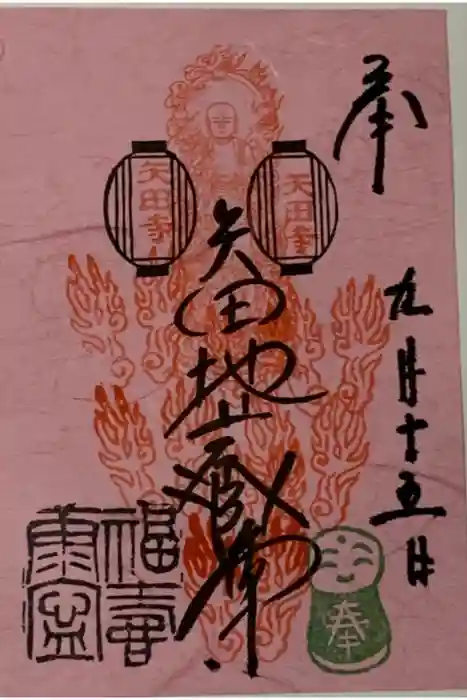 奉
九月十五日
矢田寺
矢田寺
矢田地蔵尊
奉
福壽
康寧